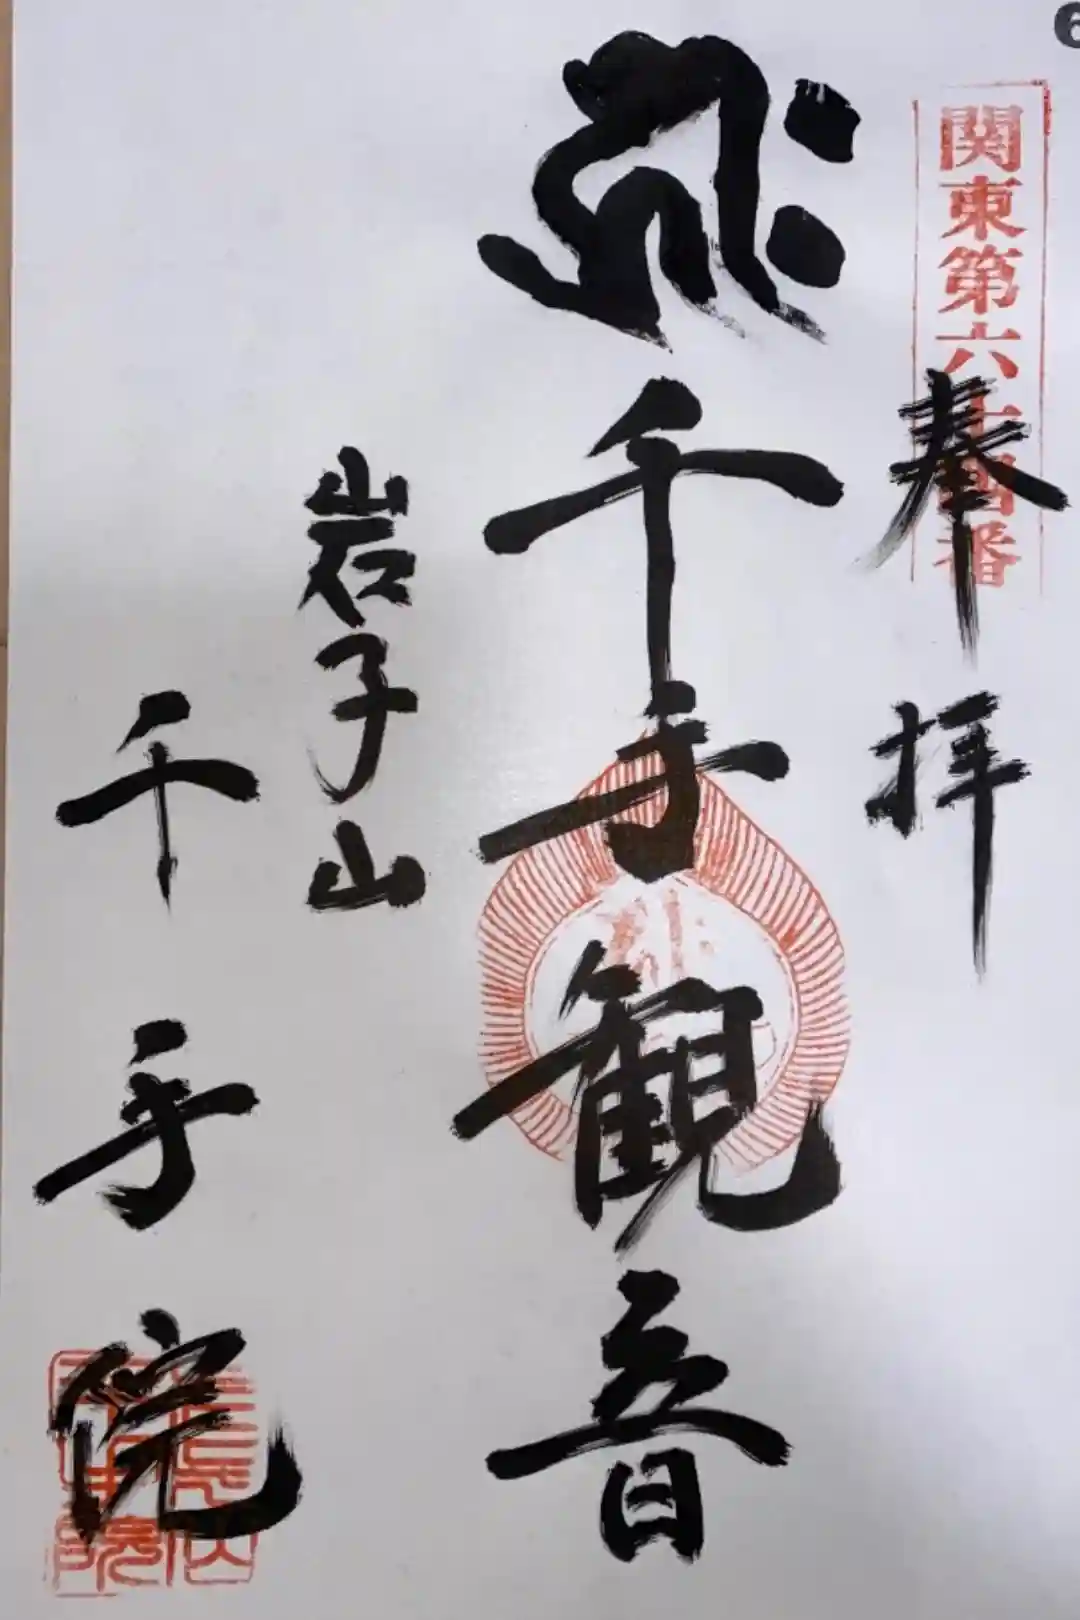 6
関東第六十四番
奉拝
𑖮𑖿𑖨𑖱𑖾
千手観音
岩子山
千手院